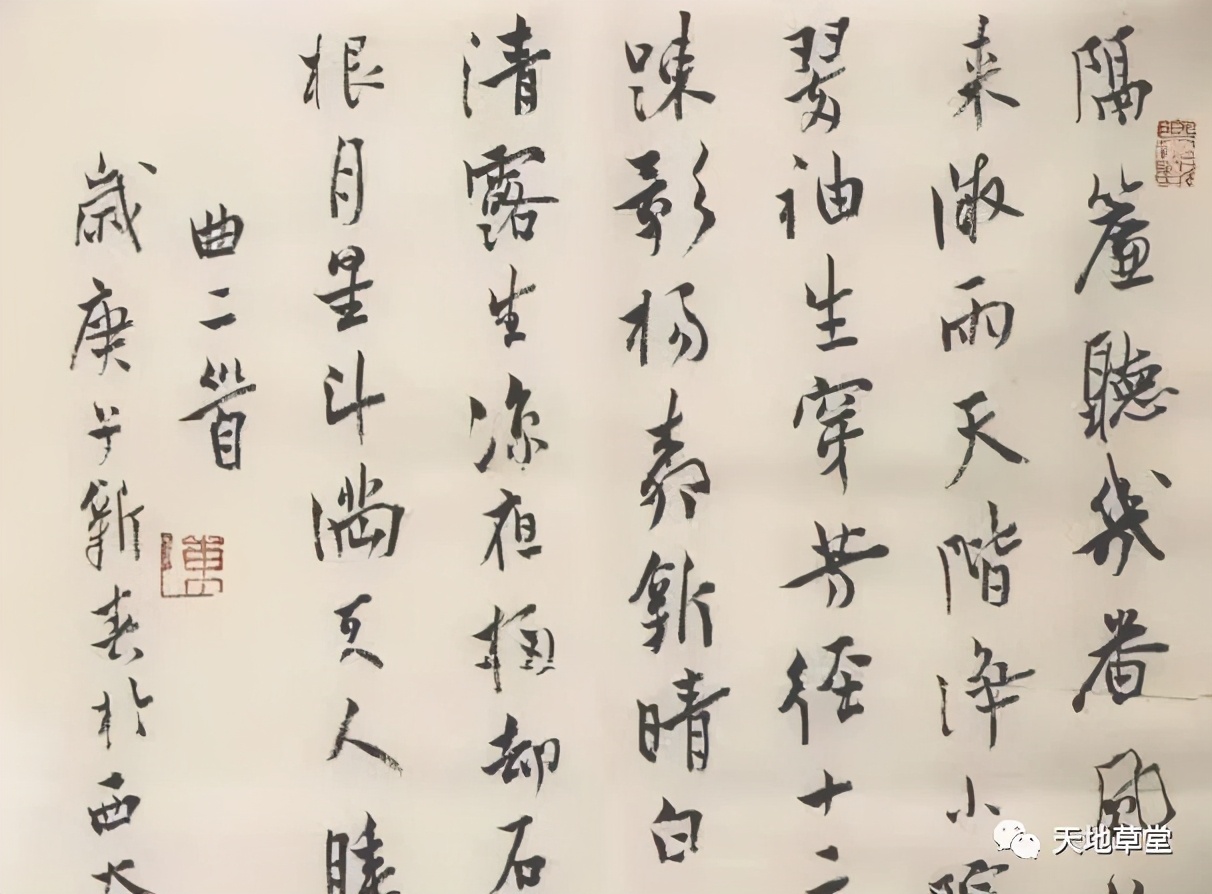 隔簾聽幾番風
来微雨天階净小院
翠袖生穿芳徑十二
踈影楊新晴白
清露生凉夜却石
根月星斗满天人睡
曲二首
歲庚子新春於西大
天地草堂